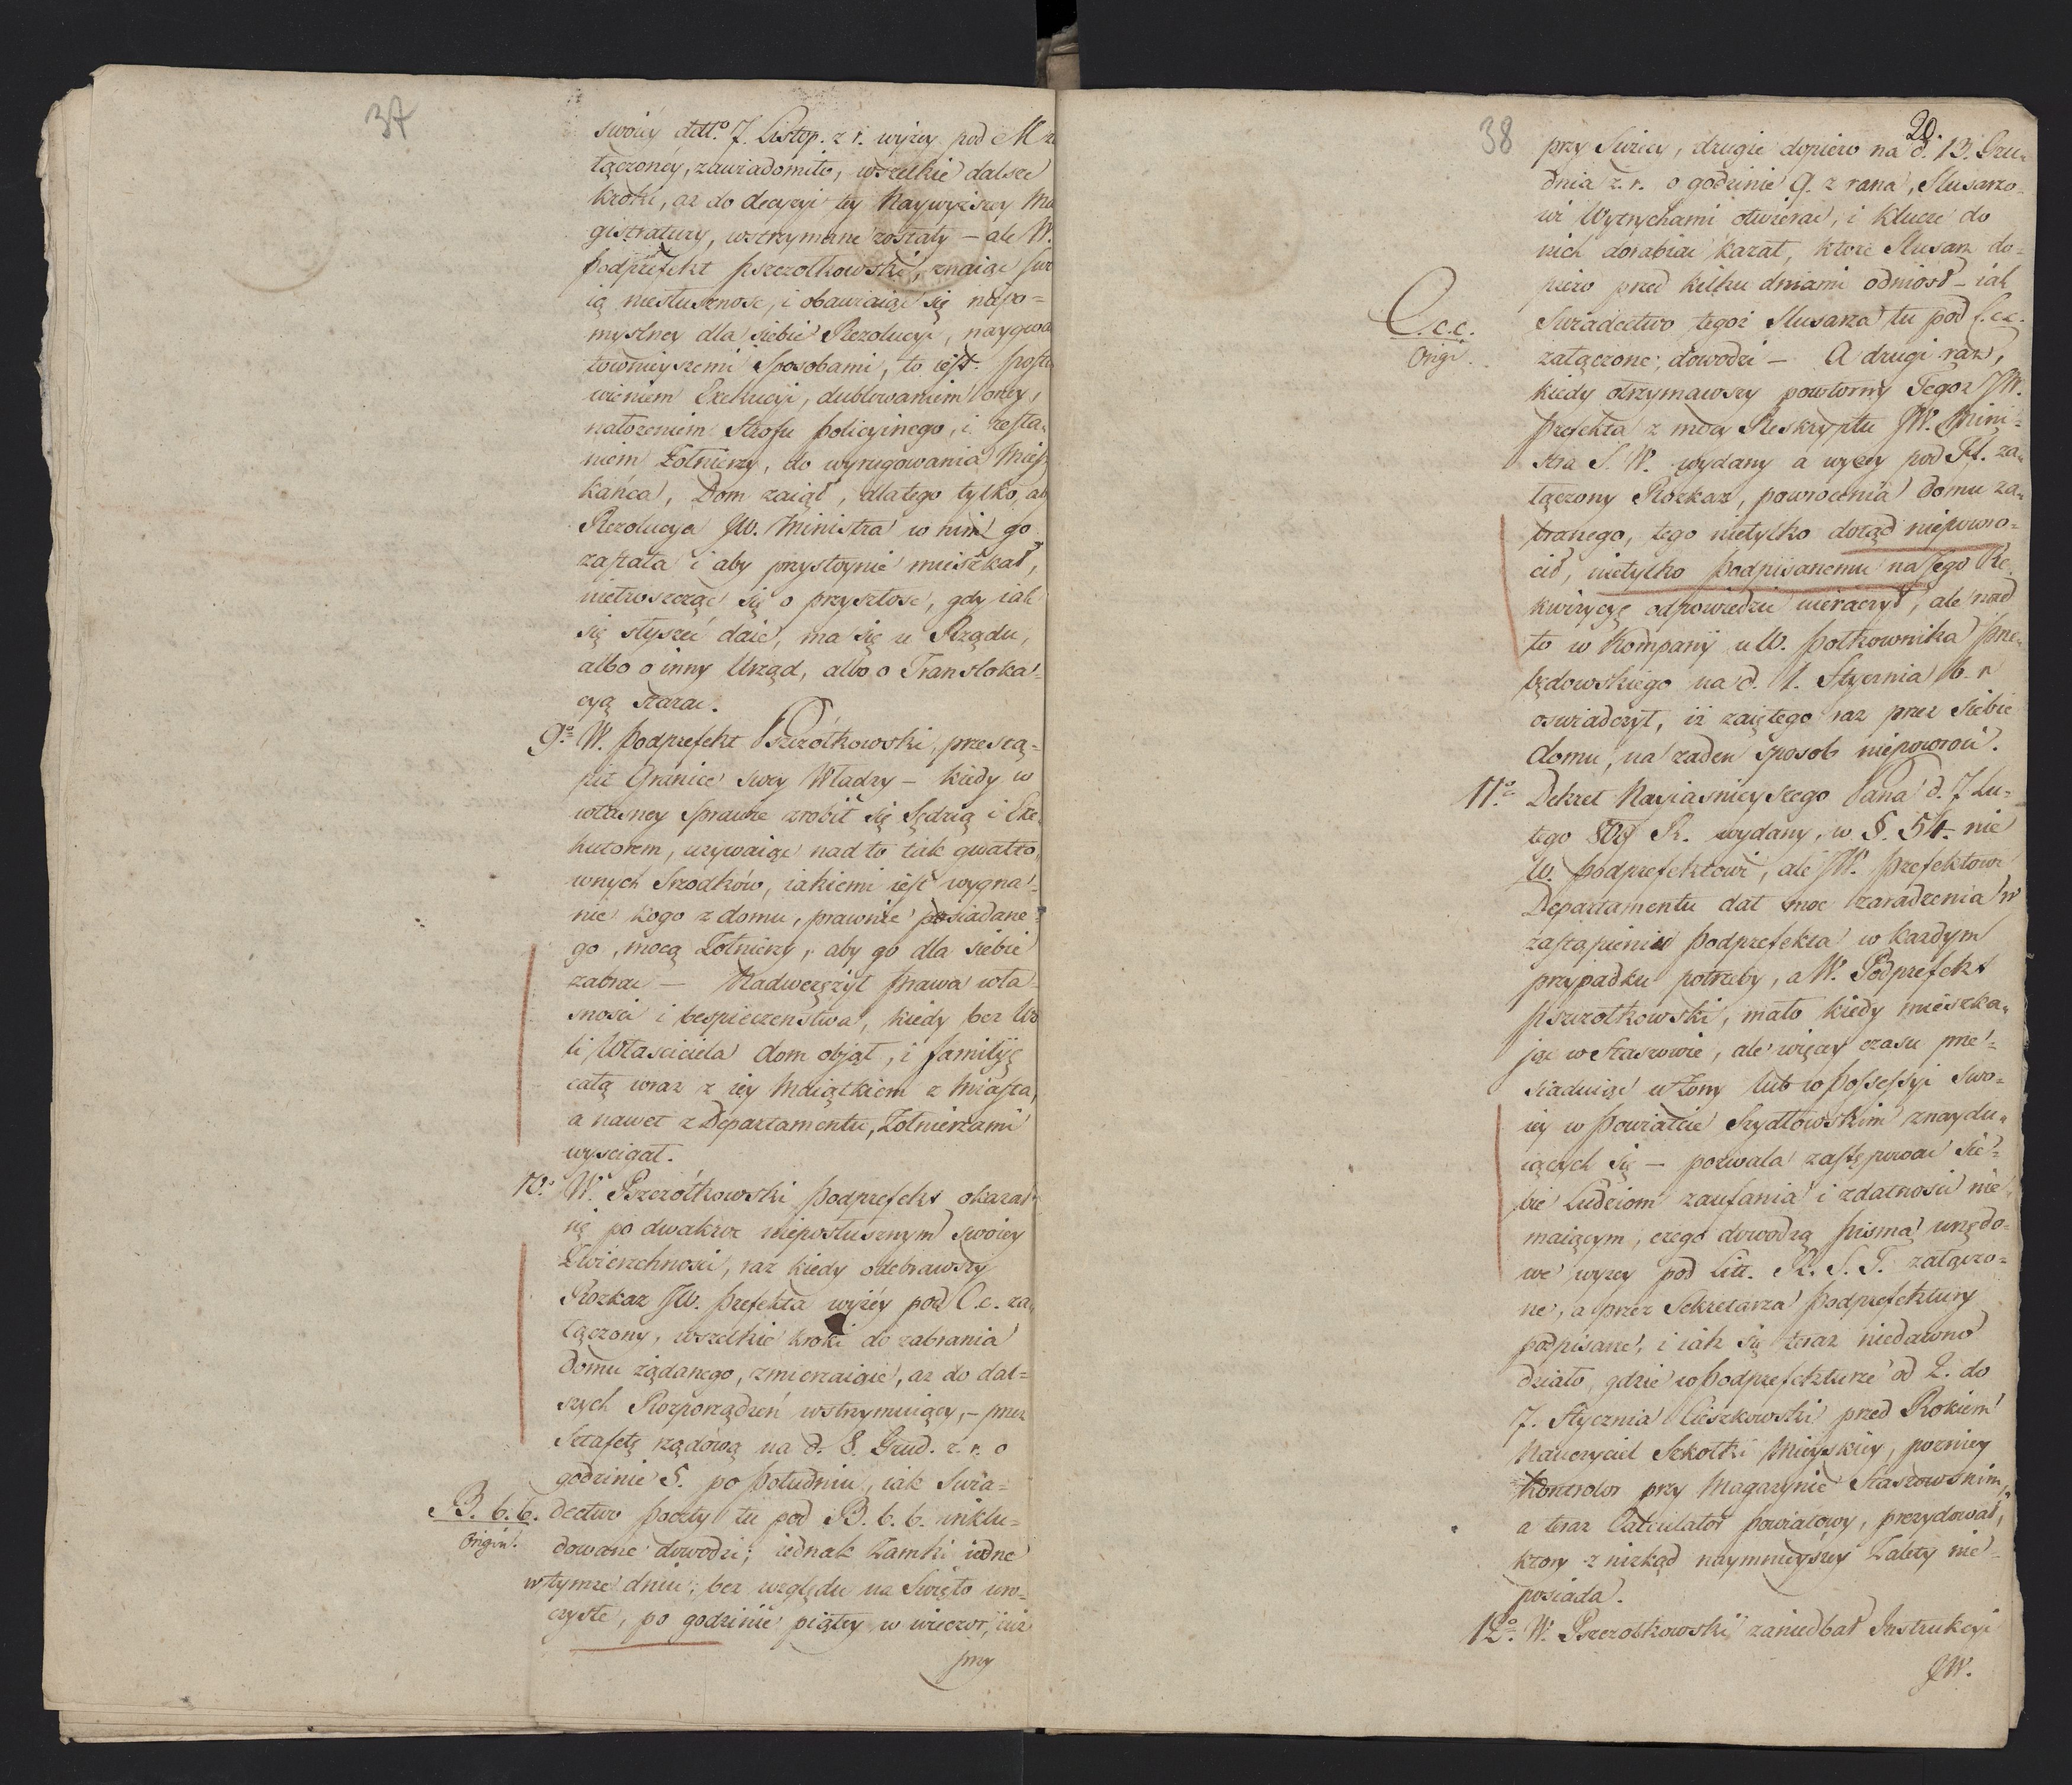 37
swoiey dtto 7. Listop. z r. wyżey pod M za
łączoney, zawiadomiło, wszelkie dalsze
kroki, aż do decyzyi tey Naywyższey Ma
gistratury, wstrzymane zostały – ale W.
Podprefekt Pszczołkowski, znaiąc swo
ią niesłuszność, i obawiaiąc się niepo=
myślney dla siebie Rezolucyi, naygwał
townieyszemi Sposobami, to iest: posta
wieniem Exekucyi, dublowaniem oney,
nałożeniem Strofu Policyinego, i zesła„
niem Żołnierzy, do wyrugowania Miesz
kańca, Dom zaiął, dlatego tylko, ab
Rezolucya JW. Ministra w nim go
zastała i aby przystoynie mieszkał,
nietroszcząc się o przyszłość, gdy iak
się słyszeć daie, ma się u Rządu,
albo o inny Urząd, albo o Transloka=
cyą starać.
9o W. Podprefekt Pszczółkowski, przestą=
pił Granice swey Władzy – kiedy w
własney Sprawie zrobił się Sędzią i Exe„
kutorem, używaiąc nad to tak gwałto„
wnych Srzodków, iakiemi iest wygna=
nie kogo z domu, prawnie posiadane=
go, mocą Żołnierzy, aby go dla siebie
zabrać – Nadwerężył prawa wła
sności i bespieczeństwa, kiedy bez Wo
li Właściciela dom objął, i familiją
całą wraz z iey Maiątkiem z Miasta,
a nawet z Departamentu, Żołnierzami
wyścigał.
10o W. Pszczółkowski Podprefekt okazał
się po dwakroć nieposłusznym swoiey
Zwierzchności, raz kiedy odebrawszy
Rozkaz JW. Prefekta wyżey pod C.c. za„
łączony, wszelkie kroki do zabrania
domu żądanego, zmierzaiące, aż do dal=
szych Rozporządzeń wstrzymuiący, – przez
Sztafetę rządową na d. 8. Grud. z. r. o
godzinie 5. po Południu, iak Świa=
B. b. b. dectwo Poczty tu pod B. b. b. inklu=
Origin. dowane dowodzi; iednak Zamki iedne
w tymże dniu, bez względu na Święto uro=
czyste, po godzinie piątey w wieczor, iuż
przy
38
20.
przy Swiecy, drugie dopiero na d. 13. Gru„
dnia z. r. o godzinie 9. z rana, Slusarzo„
wi Wytrychami otwierać, i klucze do
nich dorabiać kazał, ktore Slusarz do=
piero przed kilku dniami odniosł – iak
C.c.c. Swiadectwo tegoż Slusarza tu pod C.c.c.
Origi. załączone, dowodzi – A drugi raz,
kiedy otrzymawszy powtorny Tegoż JW.
Prefekta z mocy Reskryptu JW. Mini=
stra S. W. wydany a wyżey pod H. za„
łączony Rozkaz, powrocenia domu za„
branego, tego nietylko dotąd niepowro=
cił, nietylko Podpisanemu na Jego Re
kwizycyę odpowiedzieć nieraczył, ale nad
to w Kompanij u W. Półkownika Prze„
będowskiego na d. 1. Stycznia b. r
oswiadczył, iż zaiętego raz przez siebie
domu, na żaden sposob niepowroci.
11o Dekret Nayiaśnieyszego Pana d. 7 Lu„
tego 1809 R. wydany, w §. 54. nie
W. Podprefektowi, ale JW. Prefektowi
Departamentu dał moc zaradzenia w
zastąpieniu Podprefekta w każdym
przypadku potrzeby, a W. Podprefekt
Pszczołkowski, mało kiedy mieszka„
jąc w Staszowie, ale więcey czasu prze=
siaduiąc u Żony lub w Possessyi swo=
iey w Powiatcie Szydłowskim znaydu„
iących się – pozwala zastępować sie=
bie Ludziom zaufania i zdatności nie„
maiącym, czego dowodzą Pisma urzędo=
we wyżey pod Litt. R. S. T. załączo=
ne, a przez Sekretarza Podprefektury
podpisane, i iak się teraz niedawno
działo, gdzie w Podprefekturze od 2. do
7. Stycznia Cieszkowski przed Rokiem
Nauczyciel Szkołki Mieyskiey, pozniey
Kontrolor przy Magazynie Staszowskim,
a teraz Calculator Powiatowy, prezydował,
ktory z nizkąd naymnieyszey Zalety nie=
posiada.
12o W. Pszczołkowski zaniedbał Instrukcyi
JW.